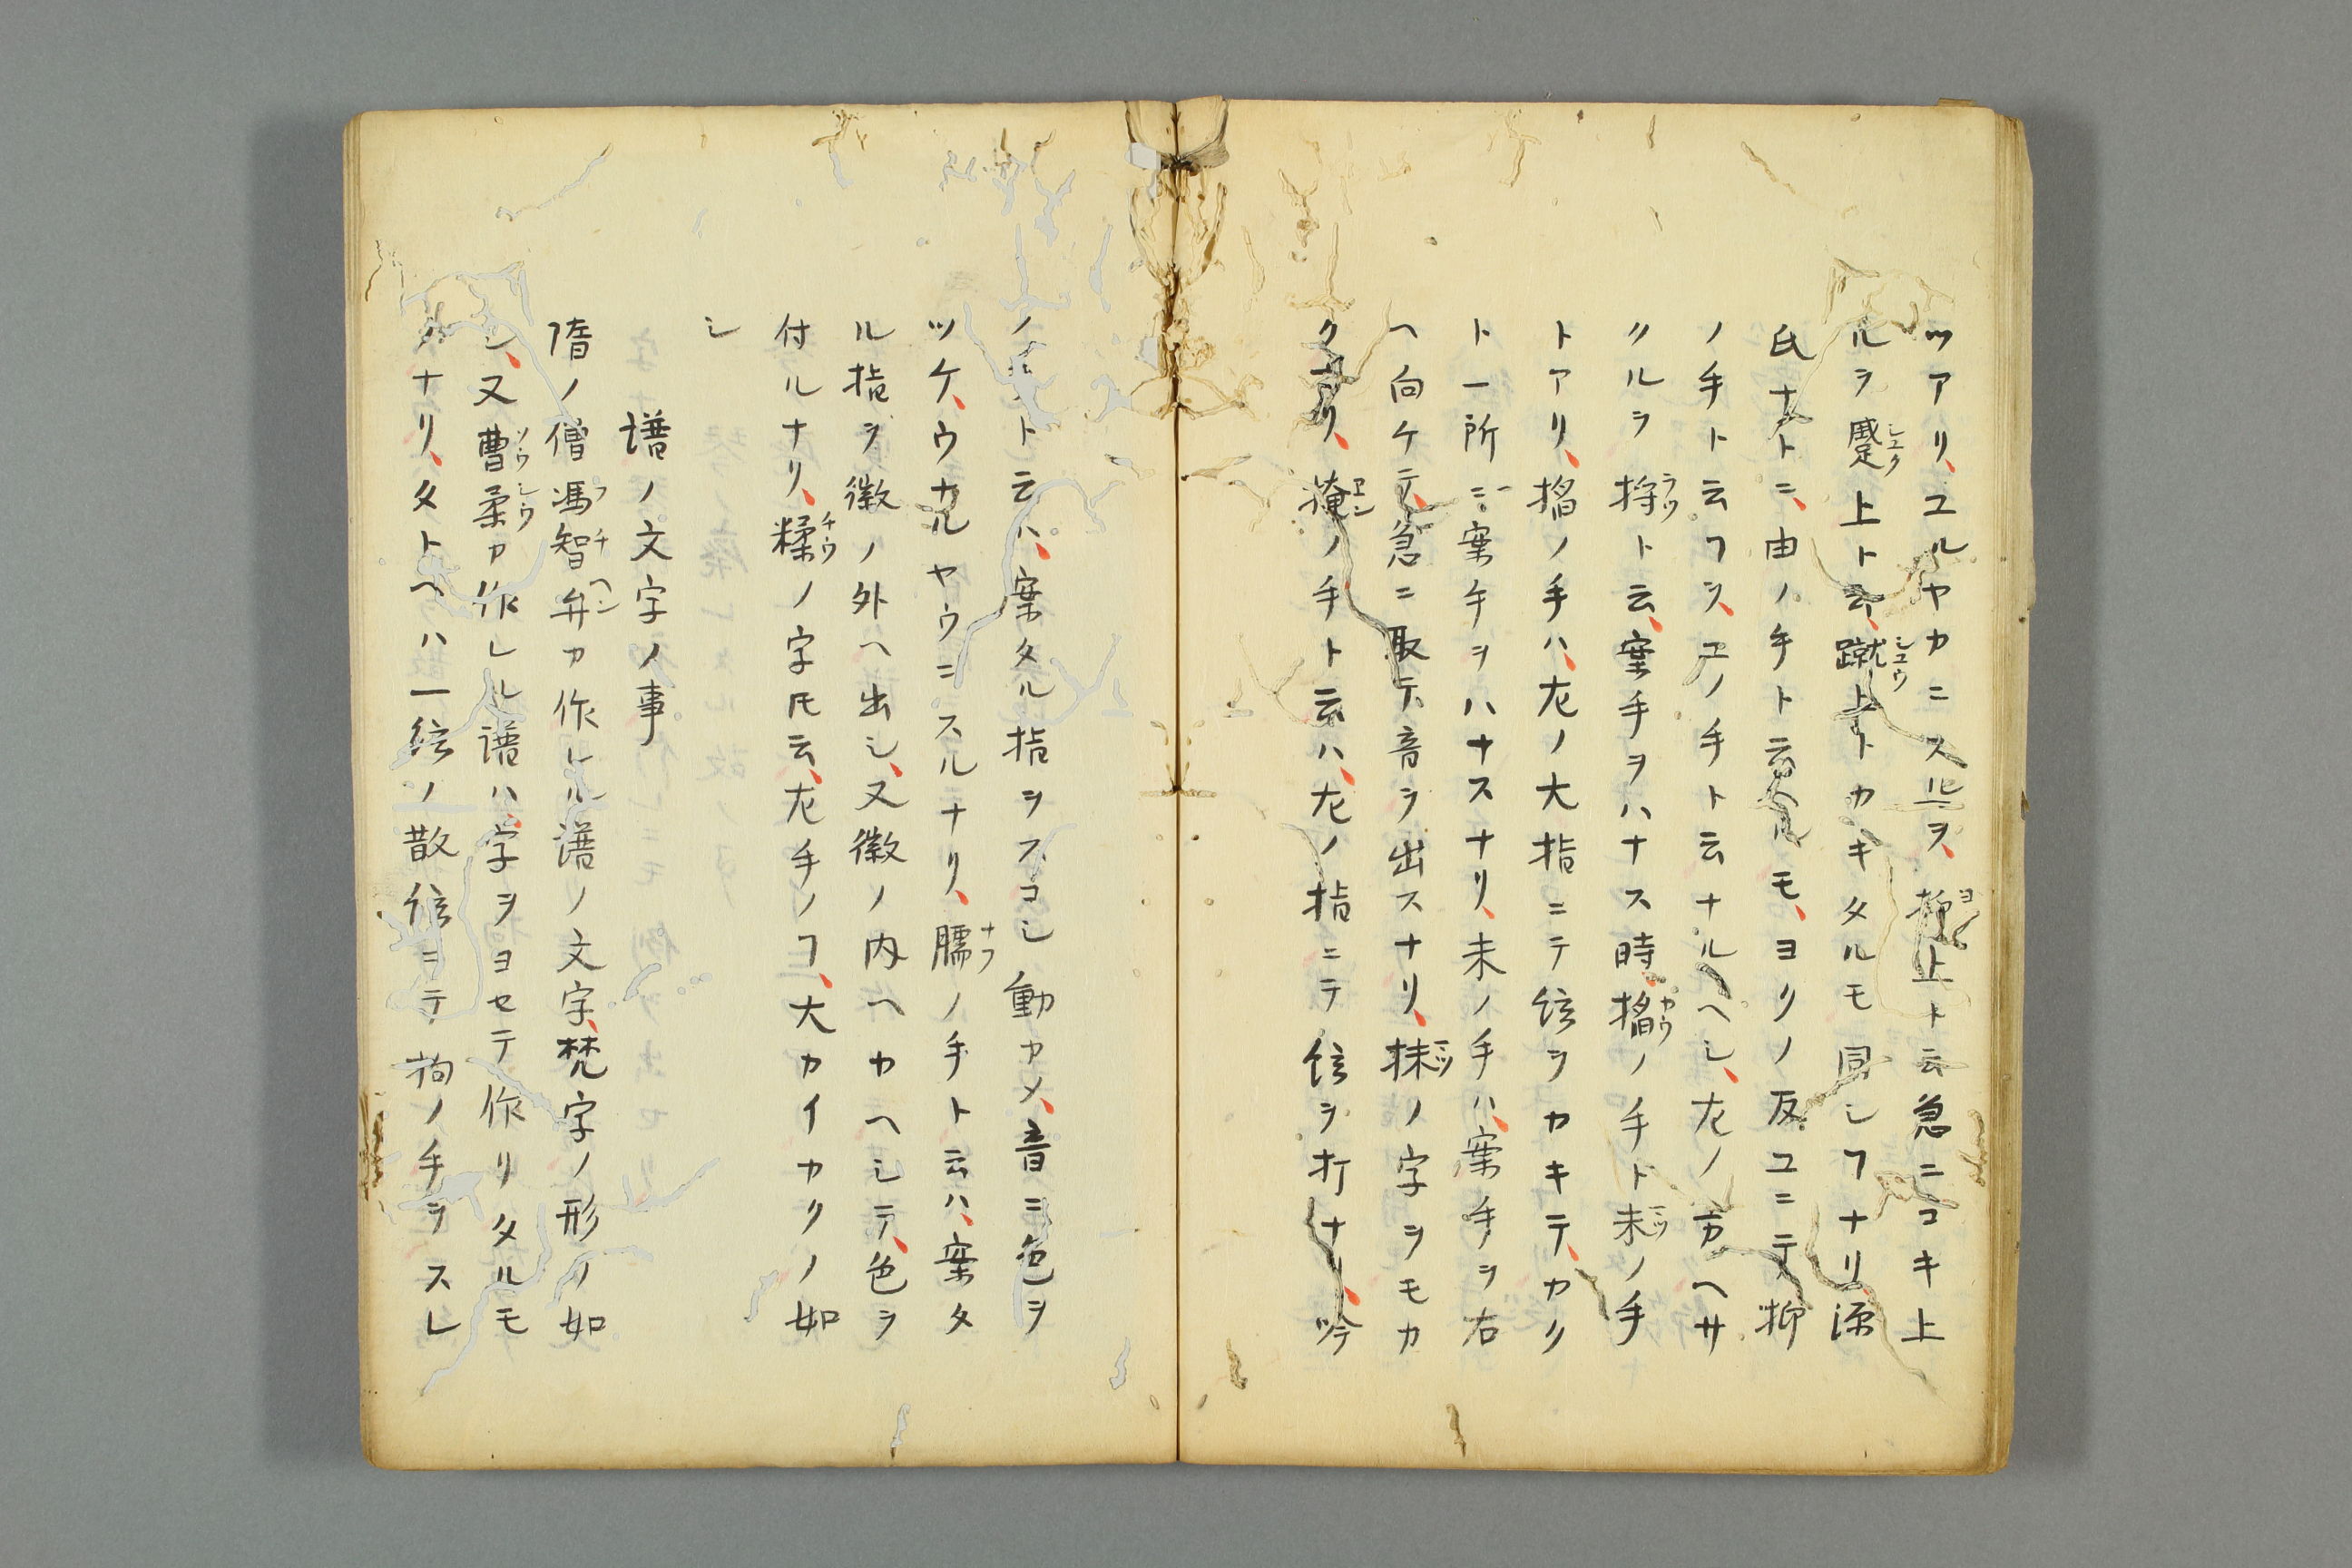 ツアリ、ユルヤカニスルヲ、抑上ト云急ニコキ上
ルヲ蹙上ト云、蹴上トカキタルモ同シヿナリ、源
氏ナトニ、由ノ手ト云ヘルモ、ヨクノ反ユニテ、抑
ノ手ト云ヿヲ、ユノ手ト云ナルヘシ、左ノ方ヘサ
クルヲ捋ト云、案手ヲハナス時、搯ノ手ト末ノ手
トアリ、搯ノ手ハ、左ノ大指ニテ絃ヲカキテ、カク
ト一所ニ案手ヲハナスナリ、末ノ手ハ、案手ヲ右
ヘ向ケテ、急ニ取テ、音ヲ出スナリ、抹ノ字ヲモカ
クナリ、掩ノ手ト云ハ、左ノ指ニテ絃ヲ打ナリ、吟
ノ手ト云ハ、案タル指ヲスコシ動カメ、音ニ色ヲ
ツケ、ウナルヤウニスルナリ、臑ノ手ト云ハ、案タ
ル指ヲ徽ノ外ヘ出シ、又徽ノ内ヘカヘシテ、色ヲ
付ルナリ、糅ノ字𪜈云、左手ノヿ、大カイカクノ如
シ
譜ノ文字ノ事
隋ノ僧馮智弁カ作レル譜ノ文字、梵字ノ形ノ如
シ、又曹柔カ作レル譜ハ、字ヲヨセテ作リタルモ
ノナリ、タトヘハ一絃ノ散絃ニテ拘ノ手ヲスレ